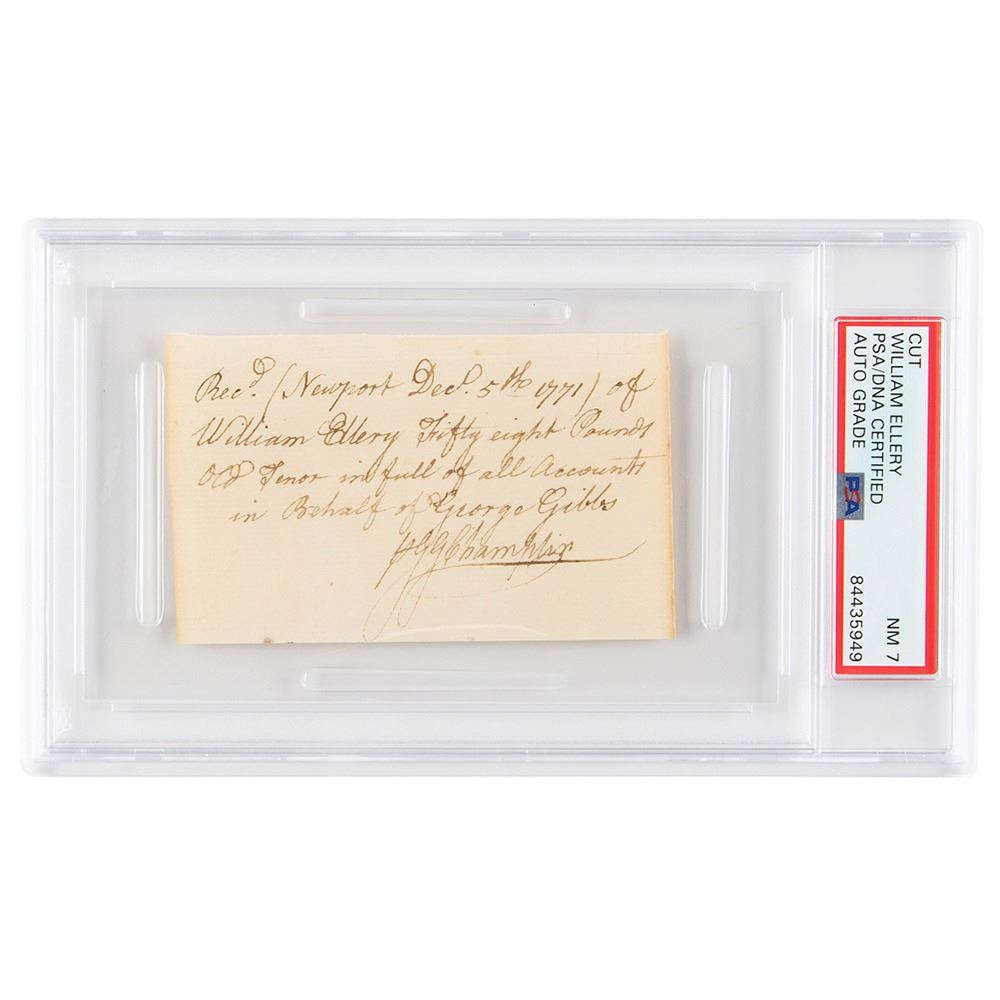 Rec.d (Newport Dec.r 5th 1771) of
William Ellery Fifty eight Pounds
Old Tenor in full of all Accounts
in Behalf of George Gibbs
Champlin
CUT
WILLIAM ELLERY
PSA/DNA CERTIFIED
AUTO GRADE
NM 7
84435949
PSA